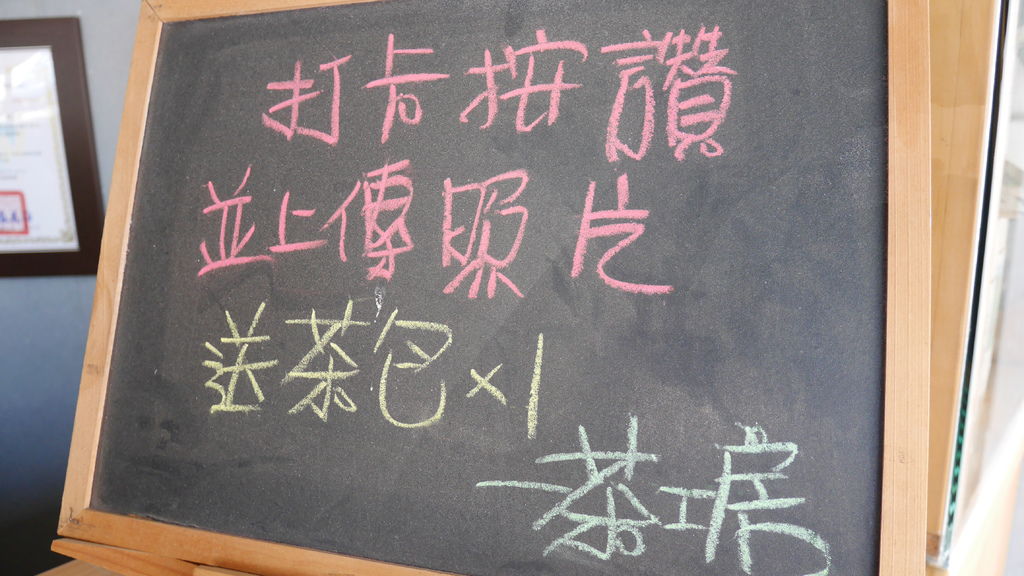 打卡按讚
並上傳照片
送茶包×1
一茶工房